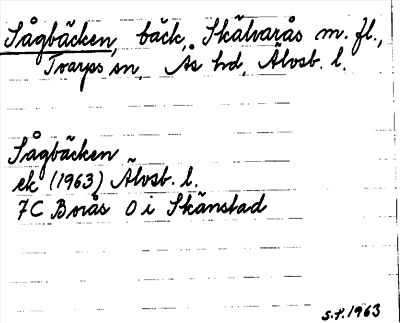 Sågbäcken, bäck, Skälvarås m. fl.,
Tvarps sn, Ås hd, Älvsb. l.
Sågbäcken
ek (1963) Älvsb. l.
7C Borås O i Skänstad
S.F. 1963